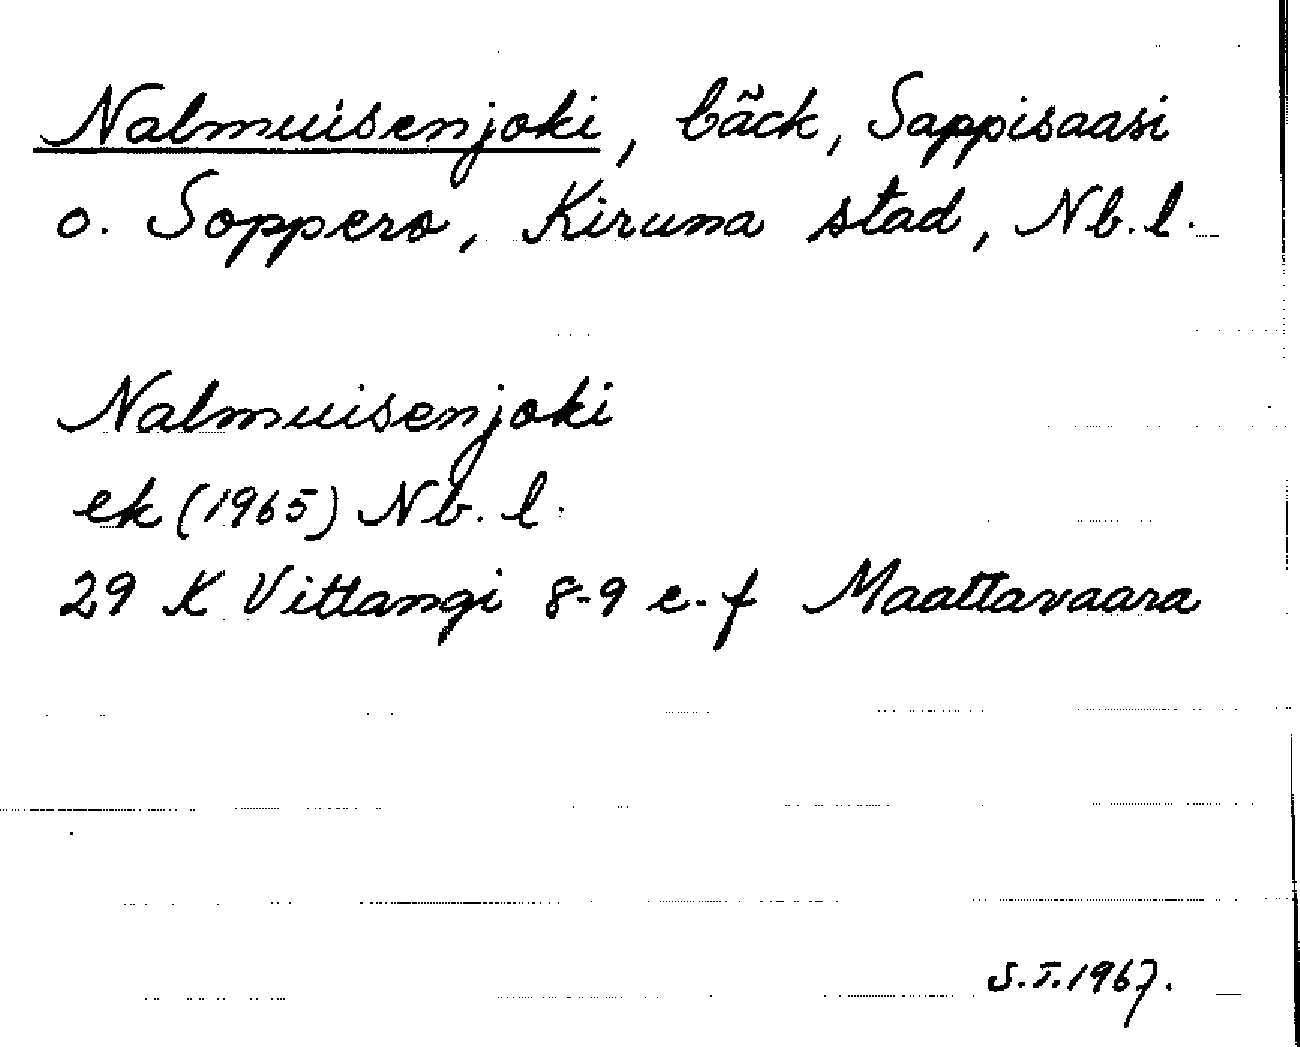 Nalmuisenjoki, bäck, Sappisaasi
o. Soppero, Kiruna stad, Nb. l.
Nalmuisenjoki
ek (1965) Nb. l.
29 K Vittangi 8-9 e-f Maattavaara
S.T. 1967.